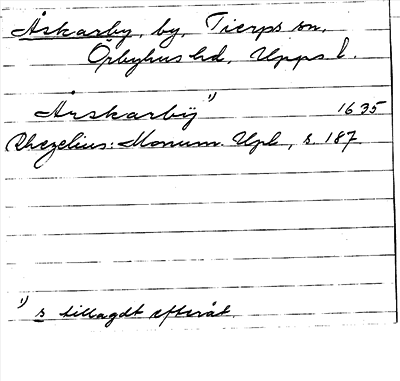 Åskarby, by, Tierps sn,
Örbyhus hd, Upps l.
Årskarbÿ ¹⁾ 1635
Rhezelius: Monum. Upl., s. 187
¹⁾ s tillagdt efteråt